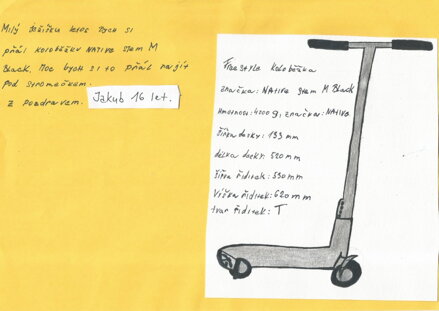 Milý Ježíšku letos bych si
přál koloběžku NATIVE Stem M
Black, Moc bych si to přál najít
Pod stromečkem.
z Pozdravem. Jakub 16 let.
Freestyle koloběžka
značka: NATIVE Stem M Black
Hmotnost: 4200 g, značka: NATIVE
šířka desky: 133 mm
délka desky: 520 mm
šířka řídítek: 550 mm
Výška řídítek: 620 mm
tvar řídítek: T